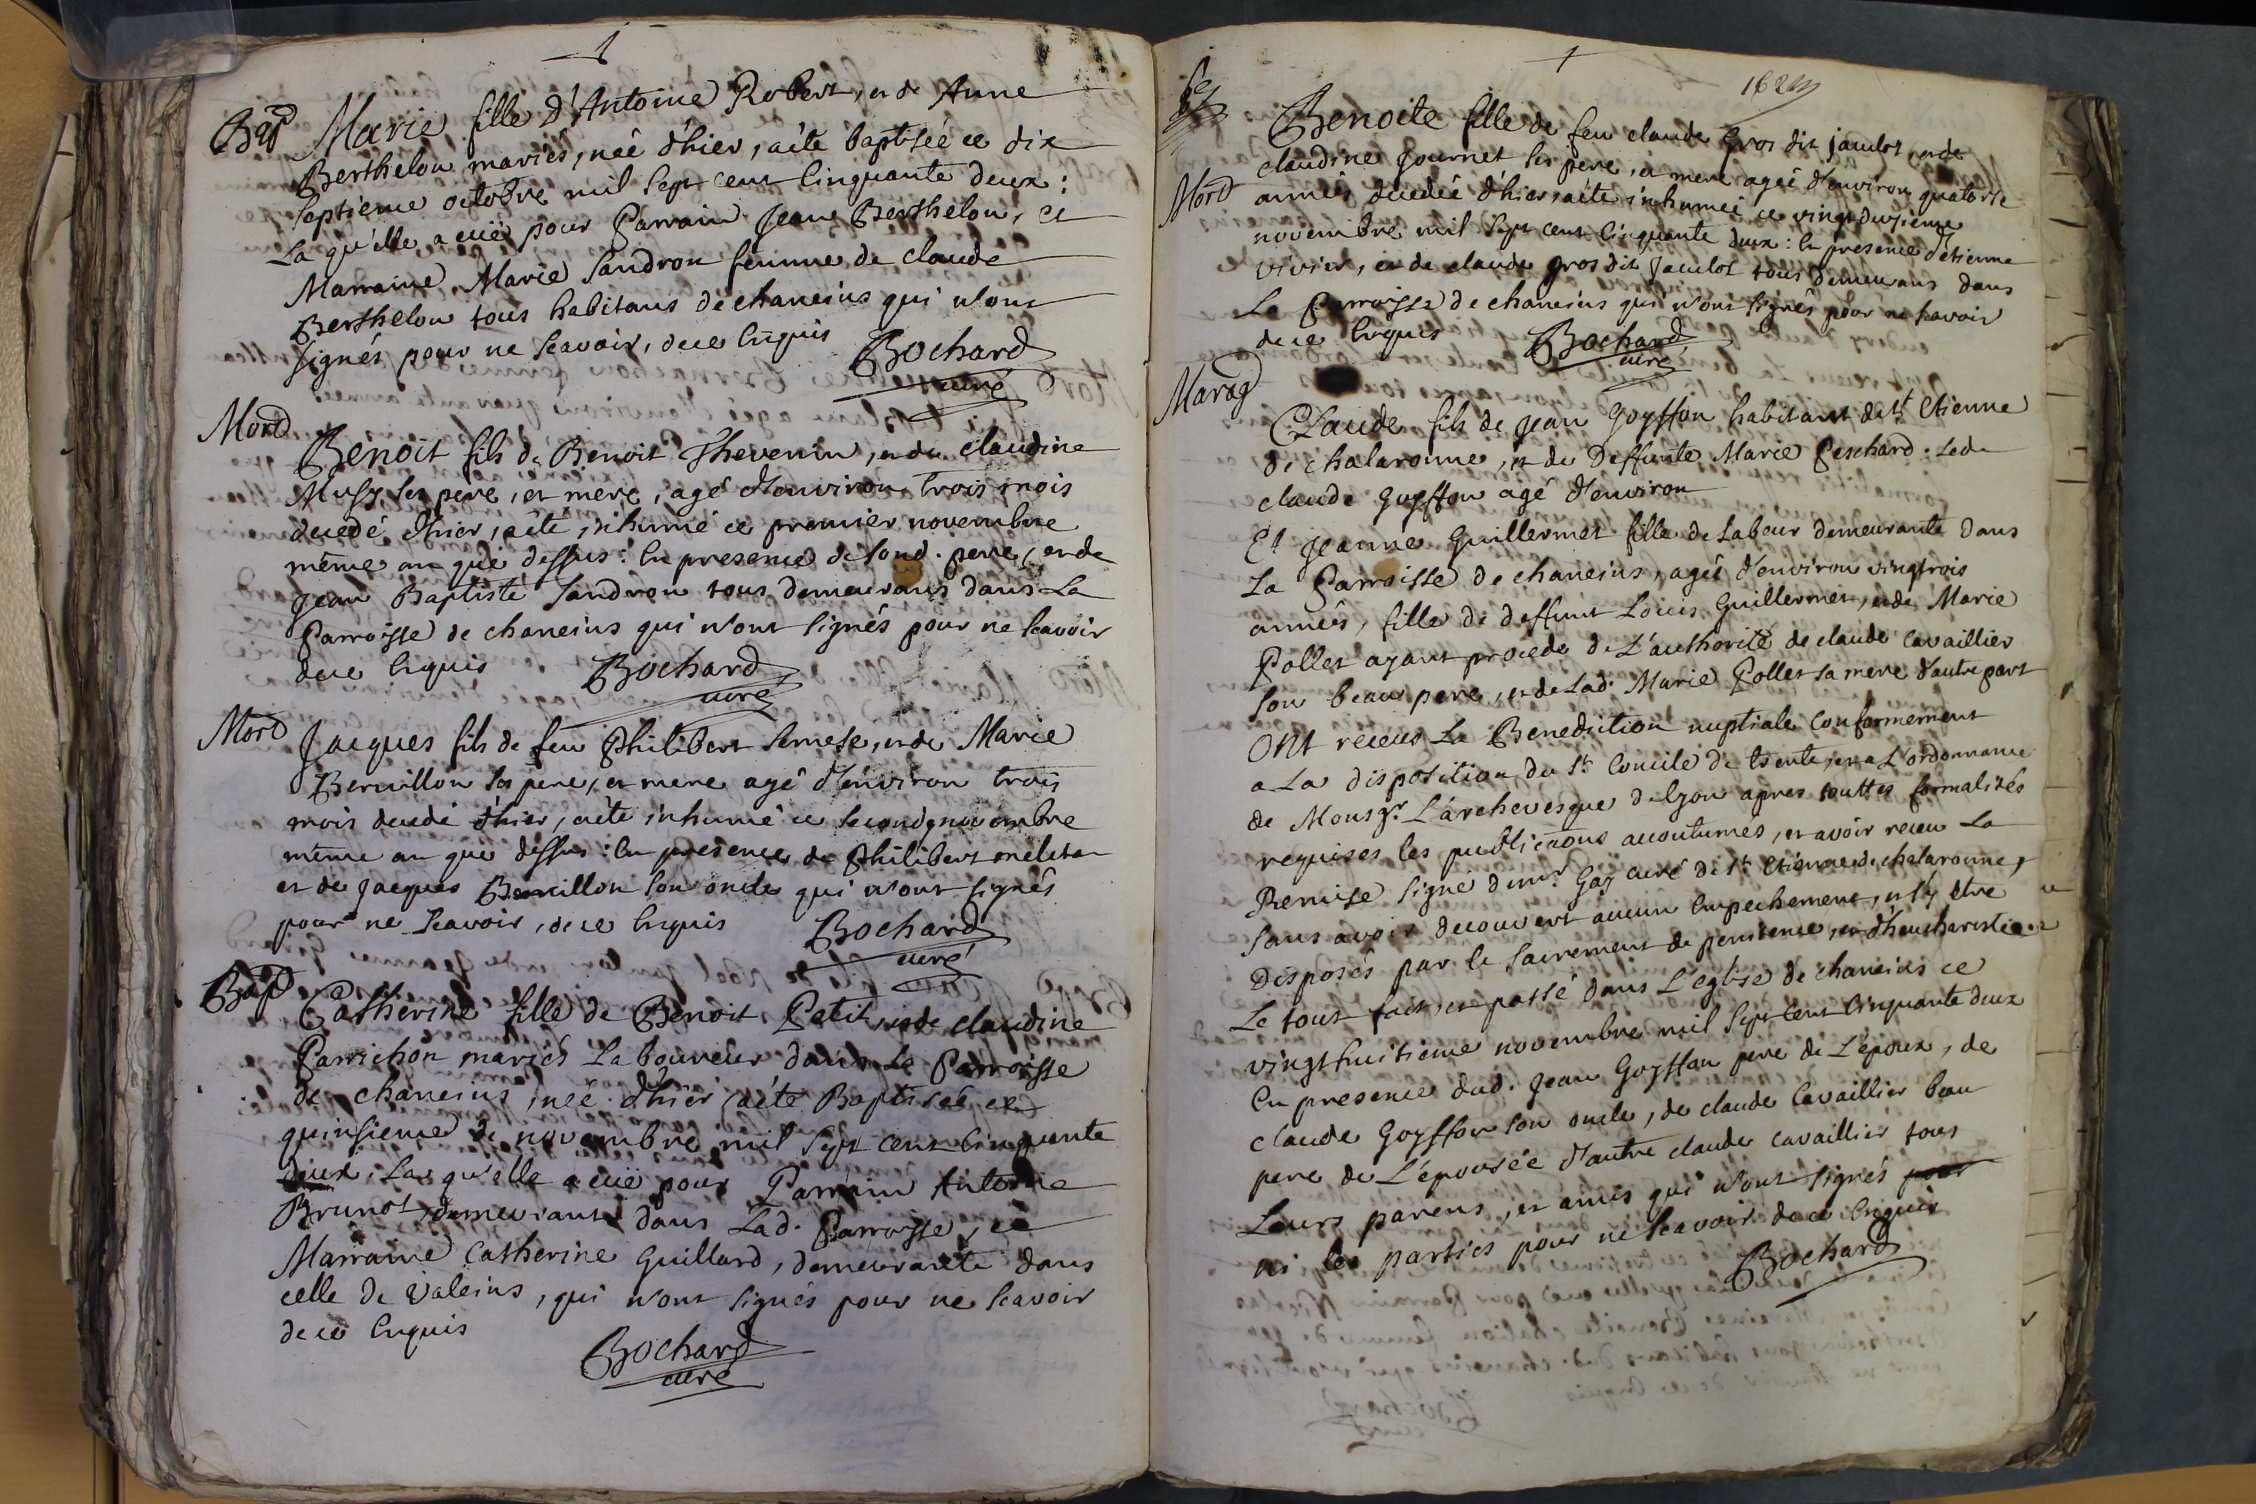 Bap
Marie fille d'Antoine Robert, et de Anne
Berthelon mariés, née d'hier, a été baptisée ce dix
septieme octobre mil sept cent cinquante deux :
La qu'elle a euë pour Parrain Jean Berthelon, et
Marraine Marie Sandron femme de claude
Berthelon tous habitans de chaneins qui n'ont
signés pour ne scavoir, de ce Enquis
Bochard
curé
Mord
Benoit fils de Benoit Thevenin, et de claudine
Mussy ses pere, et mere, agé d'environ trois mois
decedé d'hier, a été inhumé ce premier novembre
même an que dessus : En presence de sond. pere, et de
Jean Baptiste Sandron tous demeurans dans La
Parroisse de chaneins qui n'ont signés pour ne scavoir
de ce Enquis
Bochard
curé
Mord
Jacques fils de feu Philibert Semese, et de Marie
Beruillon ses pere, et mere agé d'environ trois
mois decedé d'hier, a été inhumé ce second novembre
même an que dessus : En presence de Philibert
et de Jacques Beruillon son oncle qui n'ont signés
pour ne scavoir, de ce Enquis
Bochard
curé
Bap
Catherine fille de Benoit Petit, et de claudine
Parrichon mariés Laboureur dans La Parroisse
de chaneins, née d'hier a été Baptisée ce
quinsieme de novembre mil sept cent cinquante
deux, La qu'elle a euë pour Parrain Antoine
Brunot, demeurant dans Lad. Parroisse, et
Marraine Catherine Guillard, demeurante dans
celle de Valeins, qui n'ont signés pour ne scavoir
de ce Enquis
Bochard
curé
162
Mord
Benoite fille de feu claude Gros dit jaculot, et de
claudine Journet ses pere, et mere agée d'environ quatorse
années decedée d'hier, a été inhumée ce vingt deusieme
novembre mil sept cent cinquante deux : En presence d'étienne
vivier, et de claude gros dit Jaculot tous demeurans dans
La Parroisse de chaneins qui n'ont signés pour ne scavoir
de ce Enquis
Bochard
curé
Mariag
Claude fils de Jean Goyffon habitant de St. Etienne
de chalaronne, et de Deffunte Marie Peschard. Led.
claude Goyffon agé d'environ
Et Jeanne Guillermet fille de Labeur demeurante dans
La Parroisse de chaneins, agée d'environ vingtrois
années, fille de deffunt Louis Guillermet, et de Marie
Pollet ayant procede de L'authorité de claude cavaillier
son beau pere, et de Lad. Marie Pollet sa mere d'autre part
ONt receus La Benediction nuptiale conformement
a La disposition du St. Concile de trente, et a L'ordonnance
de Monsgr. L'archevesque de lyon apres touttes formalités
requises les publicaōns acoutumés, et avoir receu La
Remise signé de mr. Gay curé de St. Etienne de chalaronne,
sans avoir decouvert aucun empechement, et s'y être
Disposés par le sacrement de penitence, et d'heucharistie
Le tout fait, et passé dans L'eglise de chaneins ce
vingthuitieme novembre mil sept cent cinquante deux
En presence dud. Jean Goyffon pere de L'époux, de
claude Goyffon son oncle, de claude Cavaillier beau
pere de L'épousée d'autre claude cavaillier tous
Leurs parens, et amis qui n'ont signés pour
ni les parties pour ne scavoir de ce Enquis
Bochard